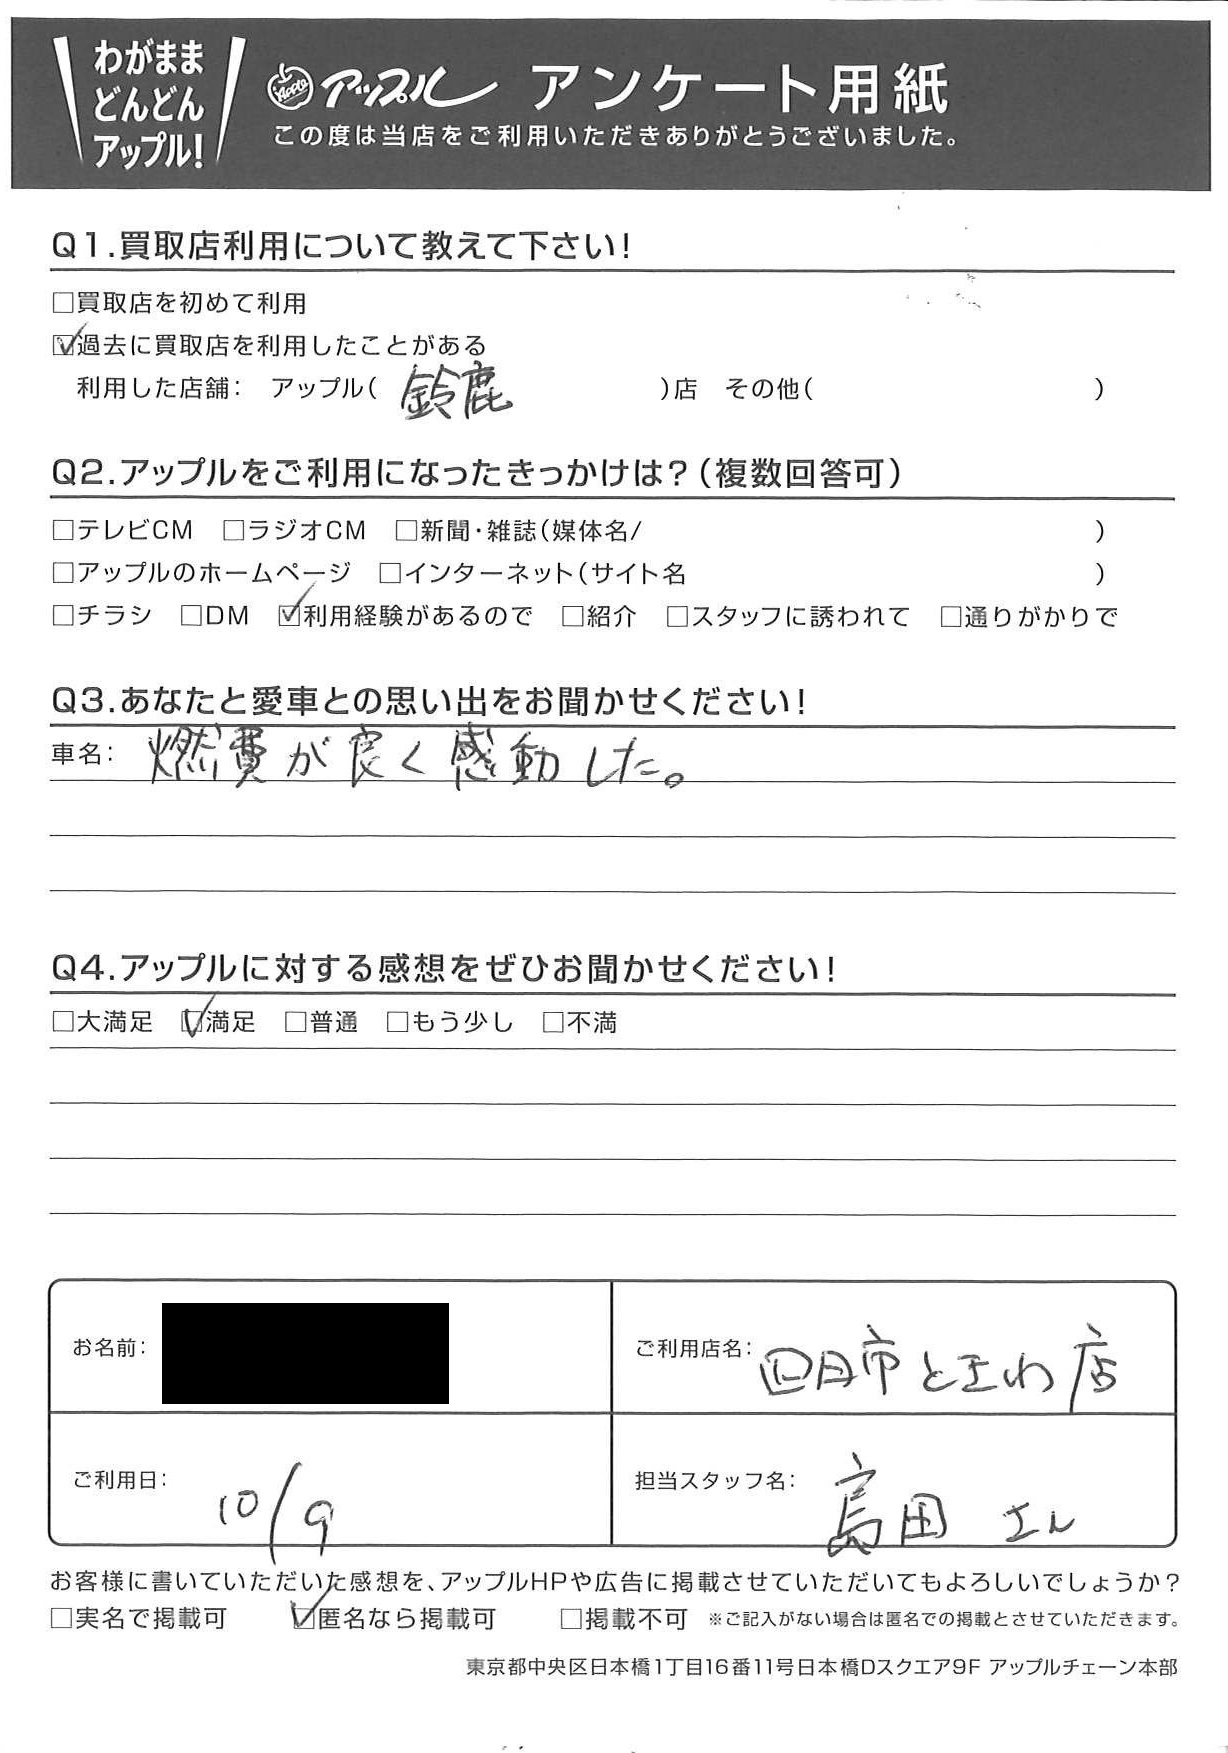 わがまま
どんどん
アップル!
Apple アップル アンケート用紙
この度は当店をご利用いただきありがとうございました。
Q1.買取店利用について教えて下さい!
□買取店を初めて利用
☑過去に買取店を利用したことがある
利用した店舗: アップル( 鈴鹿 )店 その他( )
Q2.アップルをご利用になったきっかけは?(複数回答可)
□テレビCM □ラジオCM □新聞・雑誌(媒体名/ )
□アップルのホームページ □インターネット(サイト名 )
□チラシ □DM ☑利用経験があるので □紹介 □スタッフに誘われて □通りがかりで
Q3.あなたと愛車との思い出をお聞かせください!
車名: 燃費が良く感動した。
Q4.アップルに対する感想をぜひお聞かせください!
□大満足 ☑満足 □普通 □もう少し □不満
お名前:
ご利用店名: 四日市ときわ店
ご利用日: 10/9
担当スタッフ名: 高田 さん
お客様に書いていただいた感想を、アップルHPや広告に掲載させていただいてもよろしいでしょうか?
□実名で掲載可 ☑匿名なら掲載可 □掲載不可 ※ご記入がない場合は匿名での掲載とさせていただきます。
東京都中央区日本橋1丁目16番11号日本橋Dスクエア9F アップルチェーン本部